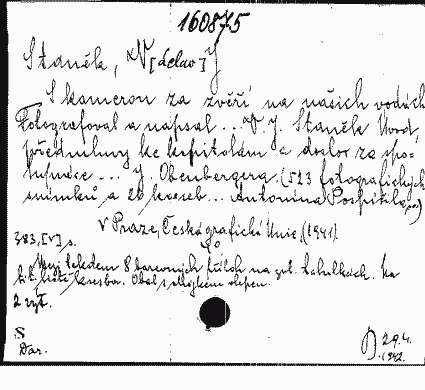 160875
Staněk, V[áclav] J
S kamerou za zvěří na našich vodách
Fotografoval a napsal... V. J. Staněk Úvod,
předmluvy ke kapitolám a doslov za spo-
lupráce ... J. Obenbergera. (523 fotografických
snímků a 20 kreseb... Antonína Pospíšila,
V Praze, Česká grafická Unie, (1941).
383, [V] s. 8°
Mezi textem 8 barevných příloh na zvl. tabulkách. Na
tit. listě kresba. Obal s
2 vyt.
S
Dar.
29.4.
1942.